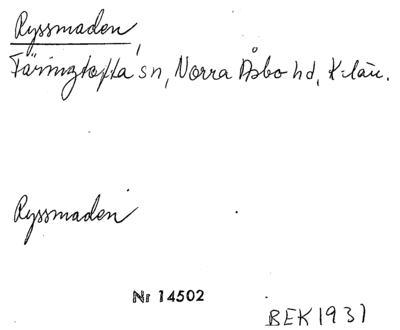 Ryssmaden,
Färingtofta sn, Norra Åsbo hd, K:län.
Ryssmaden
Nr 14502
BEK 1931